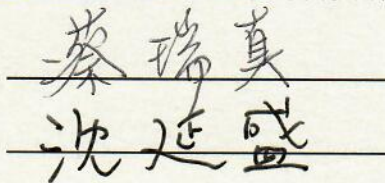 蔡瑞真
沈延盛